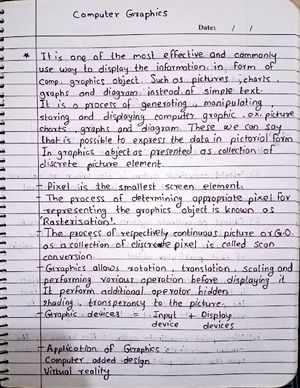 Computer Graphics
Date: / /
* It is one of the most effective and commonly
use way to display the information in form of
comp. graphics object. Such as pictures, charts,
graphs and diagram instead of simple text.
It is a process of generating, manipulating,
storing and displaying computer graphic, ex. picture
charts, graphs and diagram. These we can say
that is possible to express the data in pictorial form.
In graphics object as presented as collection of
discrete picture element.
- Pixel is the smallest screen element.
- The process of determining appropriate pixel for
representing the graphics object is known as
'Rasterisation'.
- The process of respectively continuous picture or G.O.
as a collection of discrete pixel is called scan
conversion.
- Graphics allows rotation, translation, scaling and
performing various operation before displaying it
It perform additional operator hidden
shading, transperancy to the picture.
- Graphic devices = Input + Display
device devices
- Application of Graphics -
Computer added design
Virtual reality